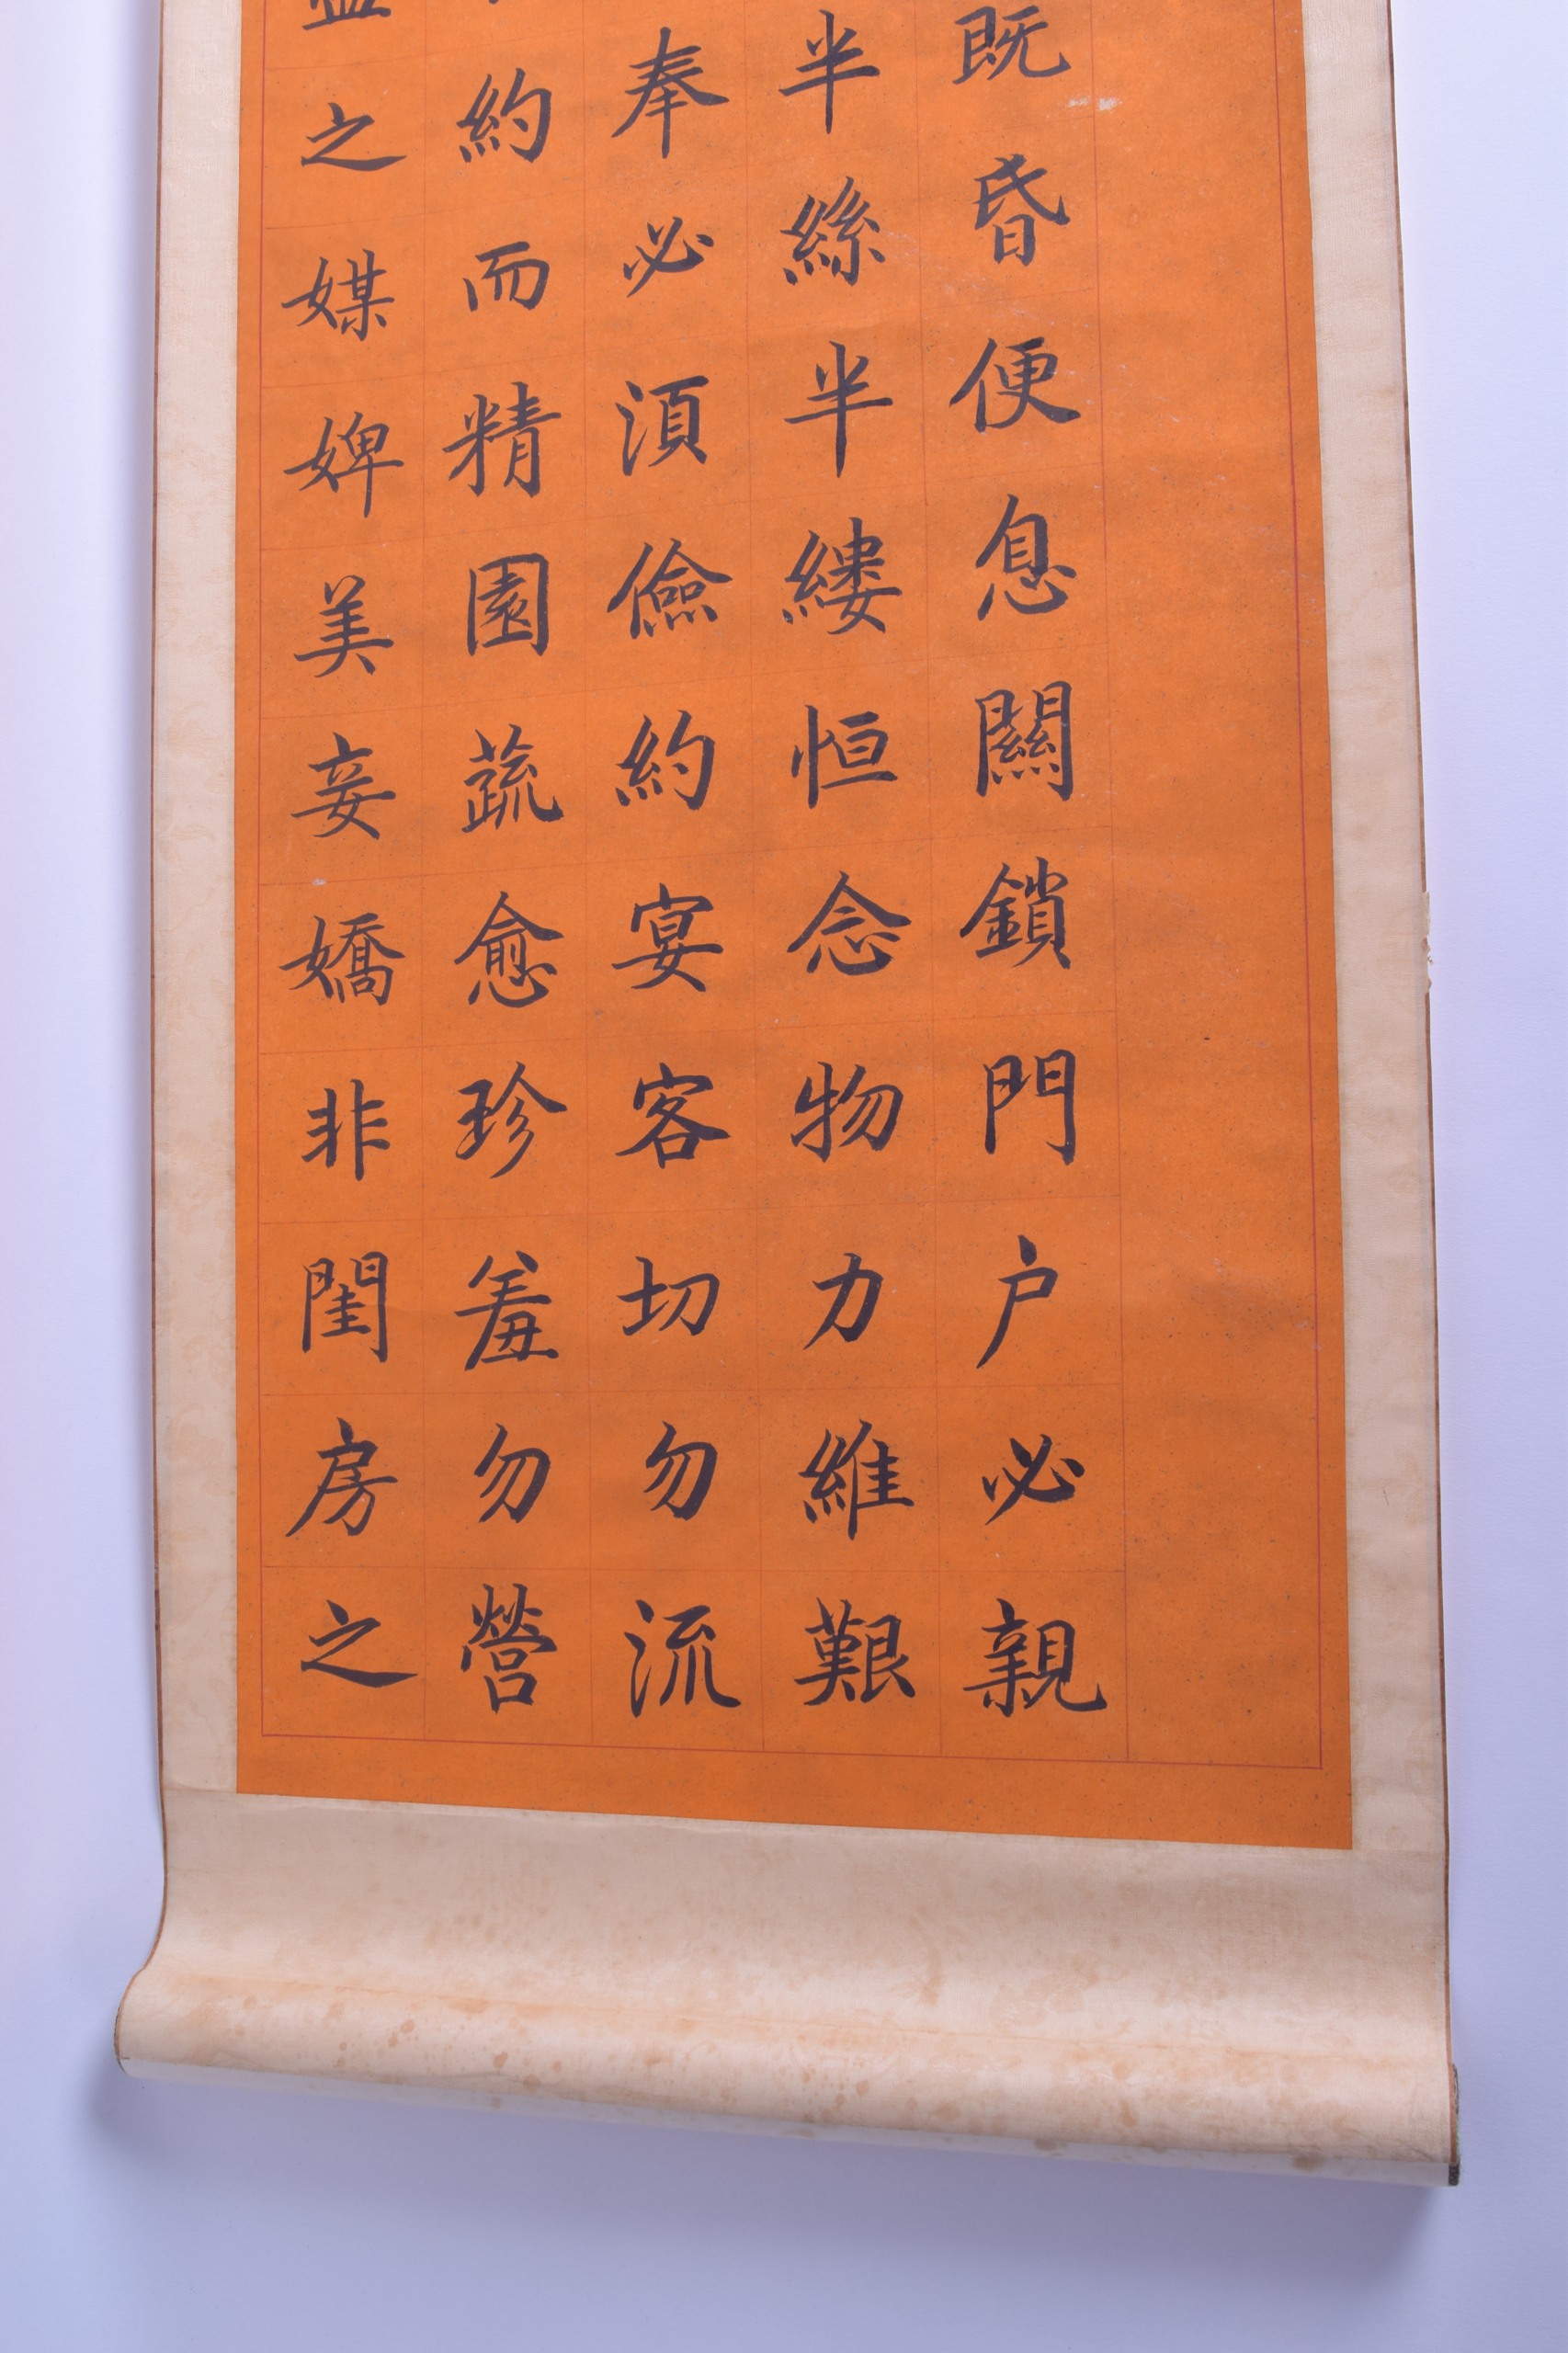 既昏便息關鎖門户必親
半絲半縷恒念物力維艱
奉必須儉約宴客切勿流
約而精園蔬愈珍羞勿營
之媒婢美妾嬌非閨房之